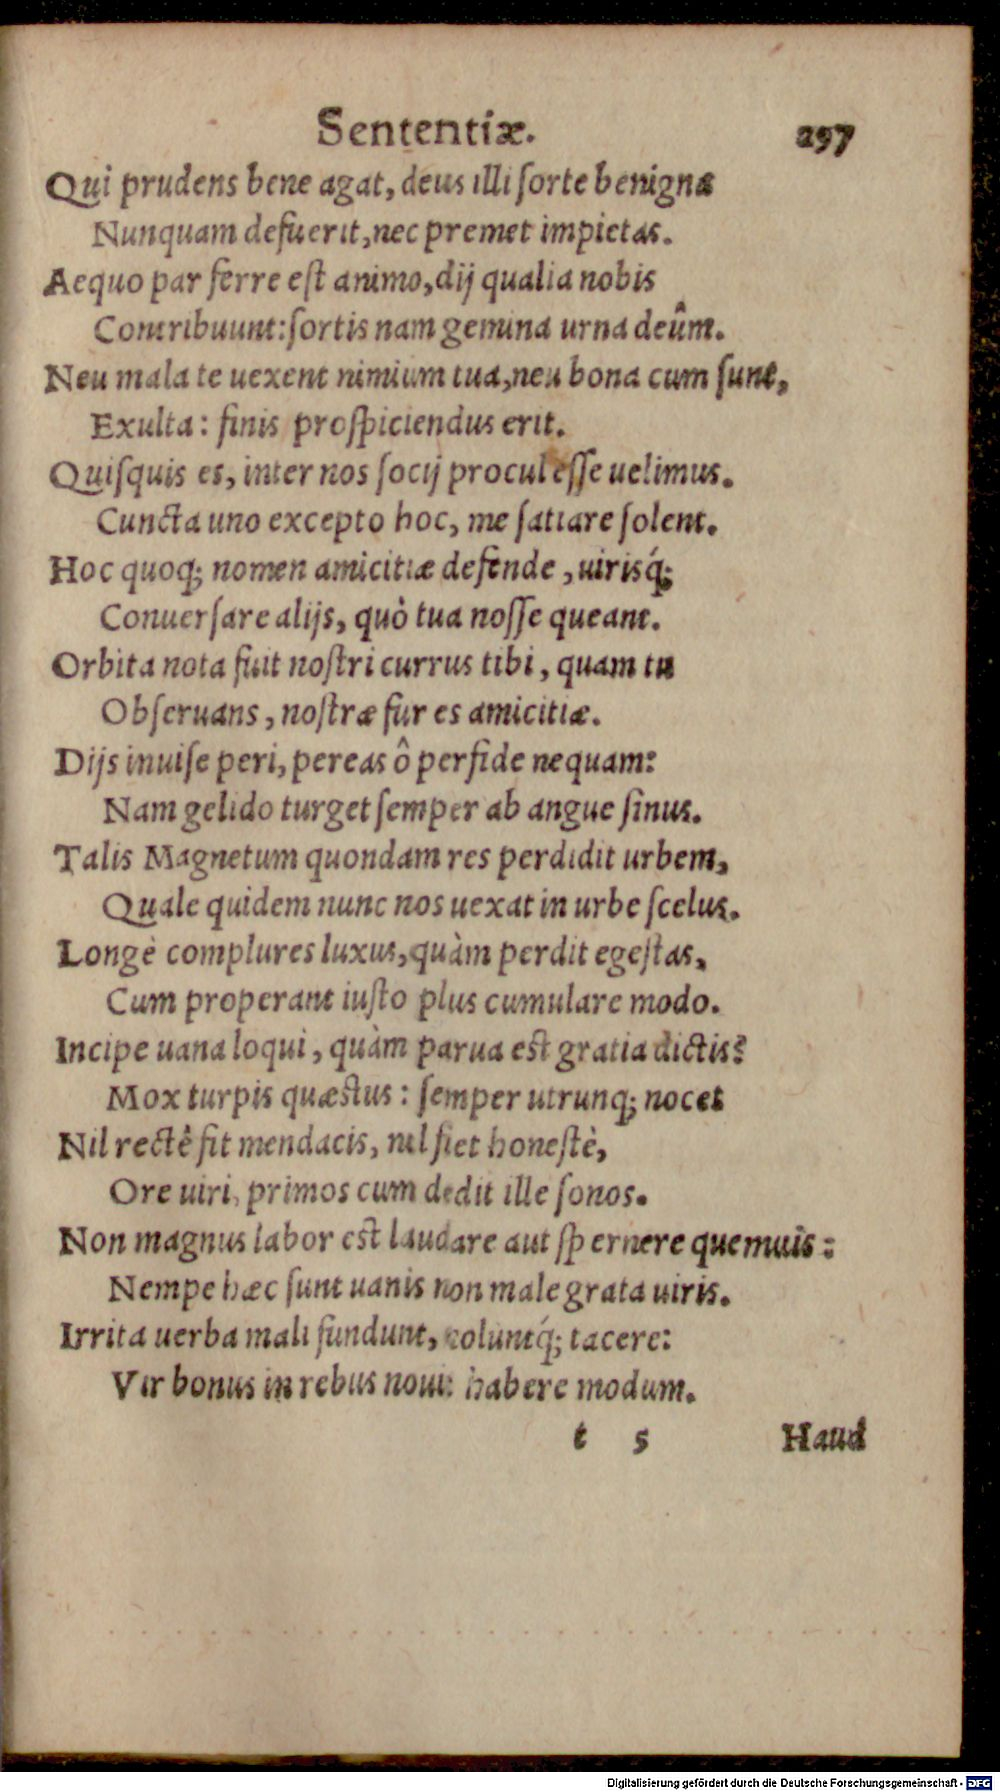 Sententiæ. 297
Qui prudens bene agat, deus illi ſorte benigna
Nunquam defuerit, nec premet impietas.
Aequo par ferre eſt animo, dij qualia nobis
Contribuunt: ſortis nam gemina urna deûm.
Neu mala te uexent nimium tua, neu bona cum ſunt,
Exulta: finis proſpiciendus erit.
Quiſquis es, inter nos ſocij procul eſſe uelimus.
Cuncta uno excepto hoc, me ſatiare ſolent.
Hoc quoq; nomen amicitiæ defende, uirisq́;
Conuerſare alijs, quò tua noſſe queant.
Orbita nota fuit noſtri currus tibi, quam tu
Obſeruans, noſtræ fur es amicitiæ.
Dijs inuiſe peri, pereas ô perfide nequam:
Nam gelido turget ſemper ab angue ſinus.
Talis Magnetum quondam res perdidit urbem,
Quale quidem nunc nos uexat in urbe ſcelus.
Longè complures luxus, quàm perdit egeſtas,
Cum properant iuſto plus cumulare modo.
Incipe uana loqui, quàm parua eſt gratia dictis?
Mox turpis quæſtus: ſemper utrunq; nocet
Nil rectè fit mendacis, nil fiet honeſtè,
Ore uiri, primos cum dedit ille ſonos.
Non magnus labor eſt laudare aut ſpernere quemuis:
Nempe hæc ſunt uanis non male grata uiris.
Irrita uerba mali fundunt, noluntq́; tacere:
Vir bonus in rebus nouit habere modum.
t 5 Haud
Digitalisierung gefördert durch die Deutsche Forschungsgemeinschaft - DFG